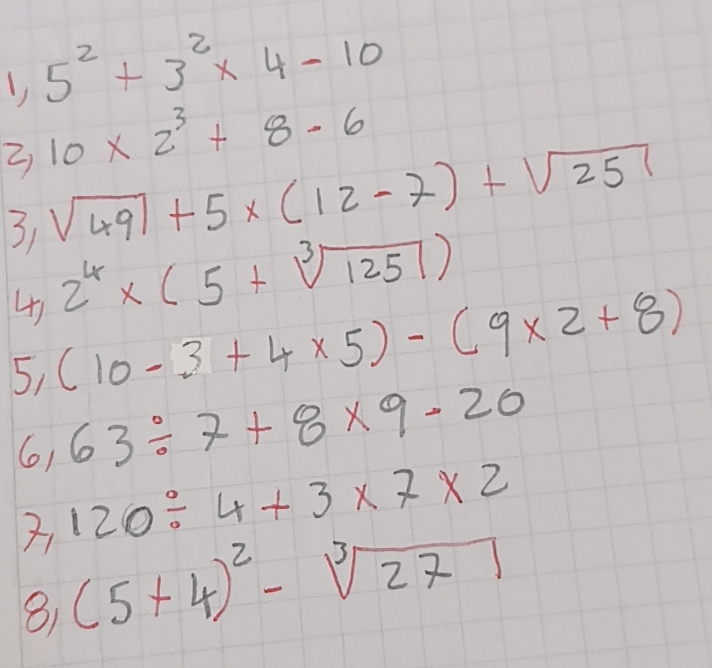 1, 5² + 3² × 4 - 10
2, 10 × 2³ + 8 - 6
3, √49 + 5 × (12 - 7) + √25
4, 2⁴ × (5 + ³√125)
5, (10 - 3 + 4 × 5) - (9 × 2 + 8)
6, 63 ÷ 7 + 8 × 9 - 20
7, 120 ÷ 4 + 3 × 7 × 2
8, (5 + 4)² - ³√27